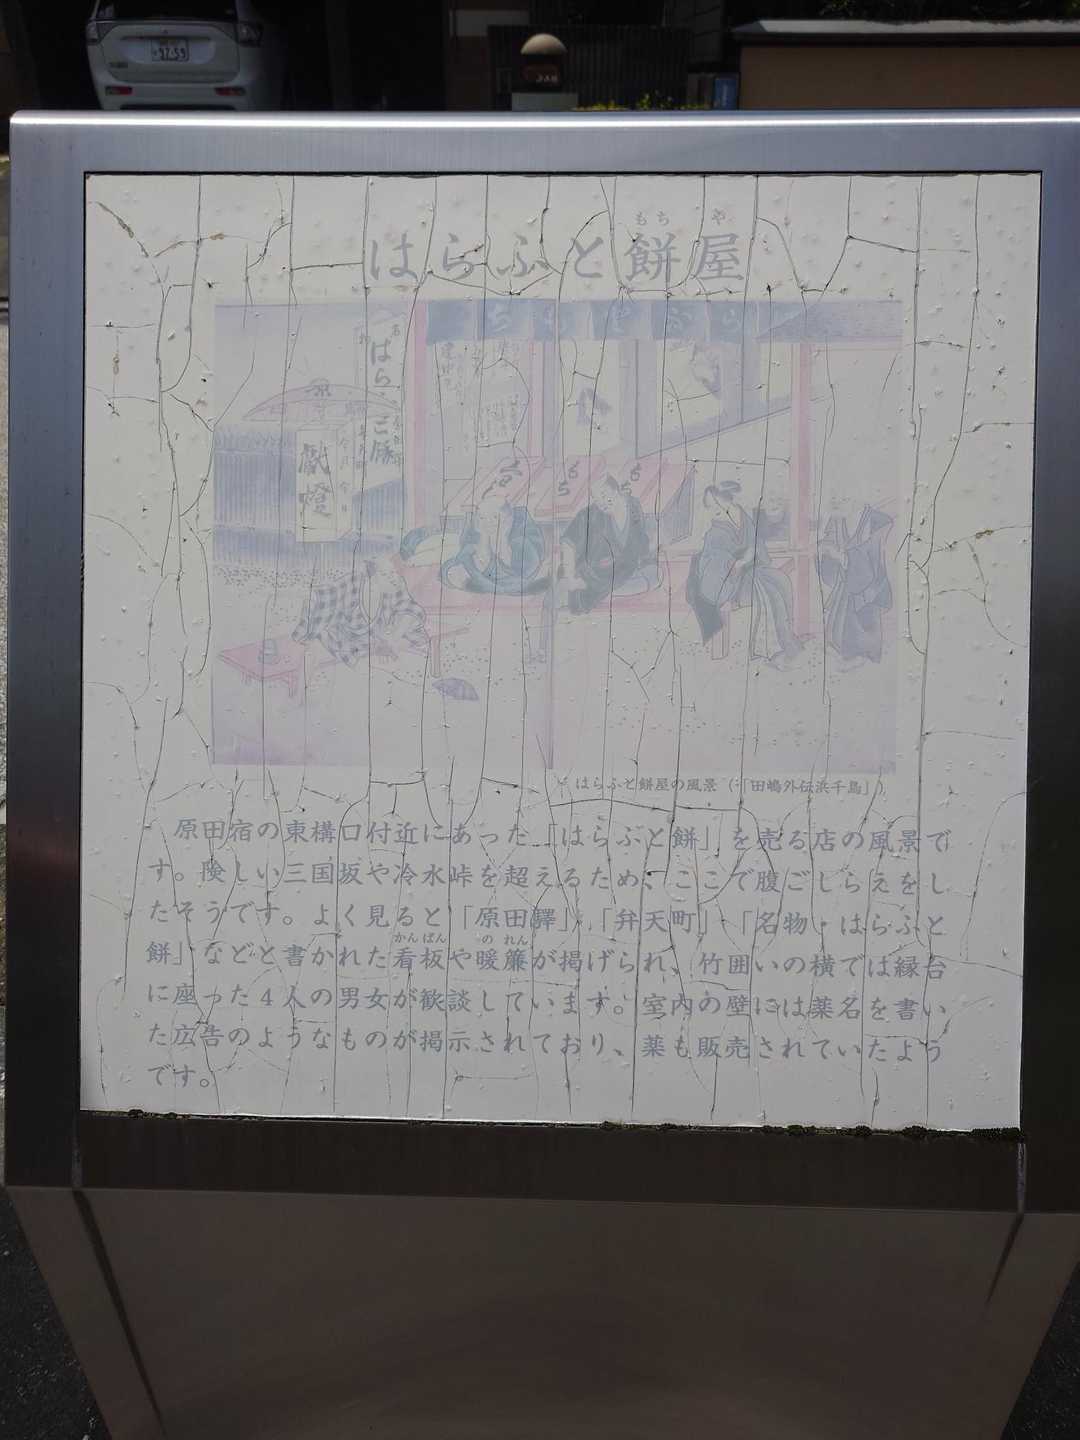 9759
もち や
はらふと餅屋
もちやはら
はら
献燈
今月今日
もち
もち
はらふと餅屋の風景（「田嶋外伝浜千鳥」）
原田宿の東構口付近にあった「はらふと餅」を売る店の風景で
す。険しい三国坂や冷水峠を超えるため、ここで腹ごしらえをし
たそうです。よく見ると「原田驛」「弁天町」「名物・はらふと
かんばん の れん
餅」などと書かれた看板や暖簾が掲げられ、竹囲いの横では縁台
に座った４人の男女が歓談しています。室内の壁には薬名を書い
た広告のようなものが掲示されており、薬も販売されていたよう
です。